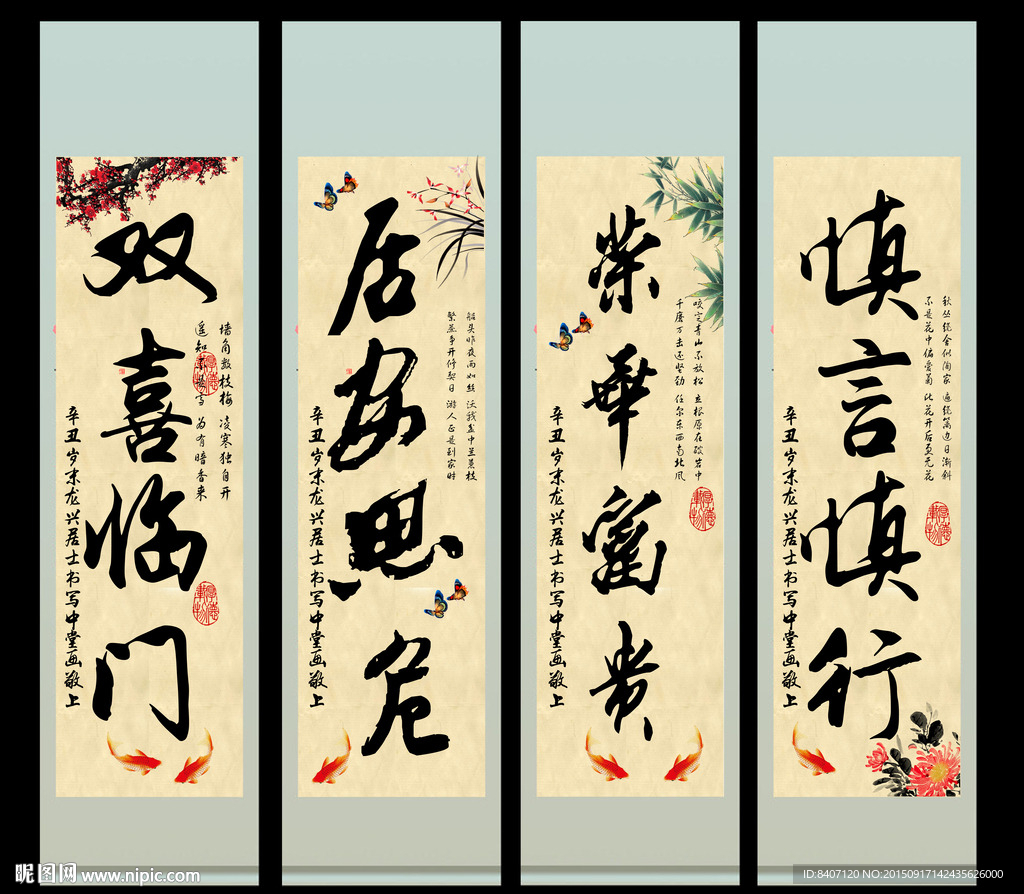 双喜临门
墙角数枝梅 凌寒独自开
遥知不是雪 为有暗香来
辛丑岁末龙兴居士书写中堂画敬上
居安思危
船头昨夜雨如丝 沃我盆中兰蕙枝
繁蕊争开修禊日 游人正是到家时
辛丑岁末龙兴居士书写中堂画敬上
荣华富贵
咬定青山不放松 立根原在破岩中
千磨万击还坚劲 任尔东西南北风
辛丑岁末龙兴居士书写中堂画敬上
慎言慎行
秋丛绕舍似陶家 遍绕篱边日渐斜
不是花中偏爱菊 此花开后更无花
辛丑岁末龙兴居士书写中堂画敬上
厚德载物
昵图网 www.nipic.com
ID:8407120 NO:20150917142435626000